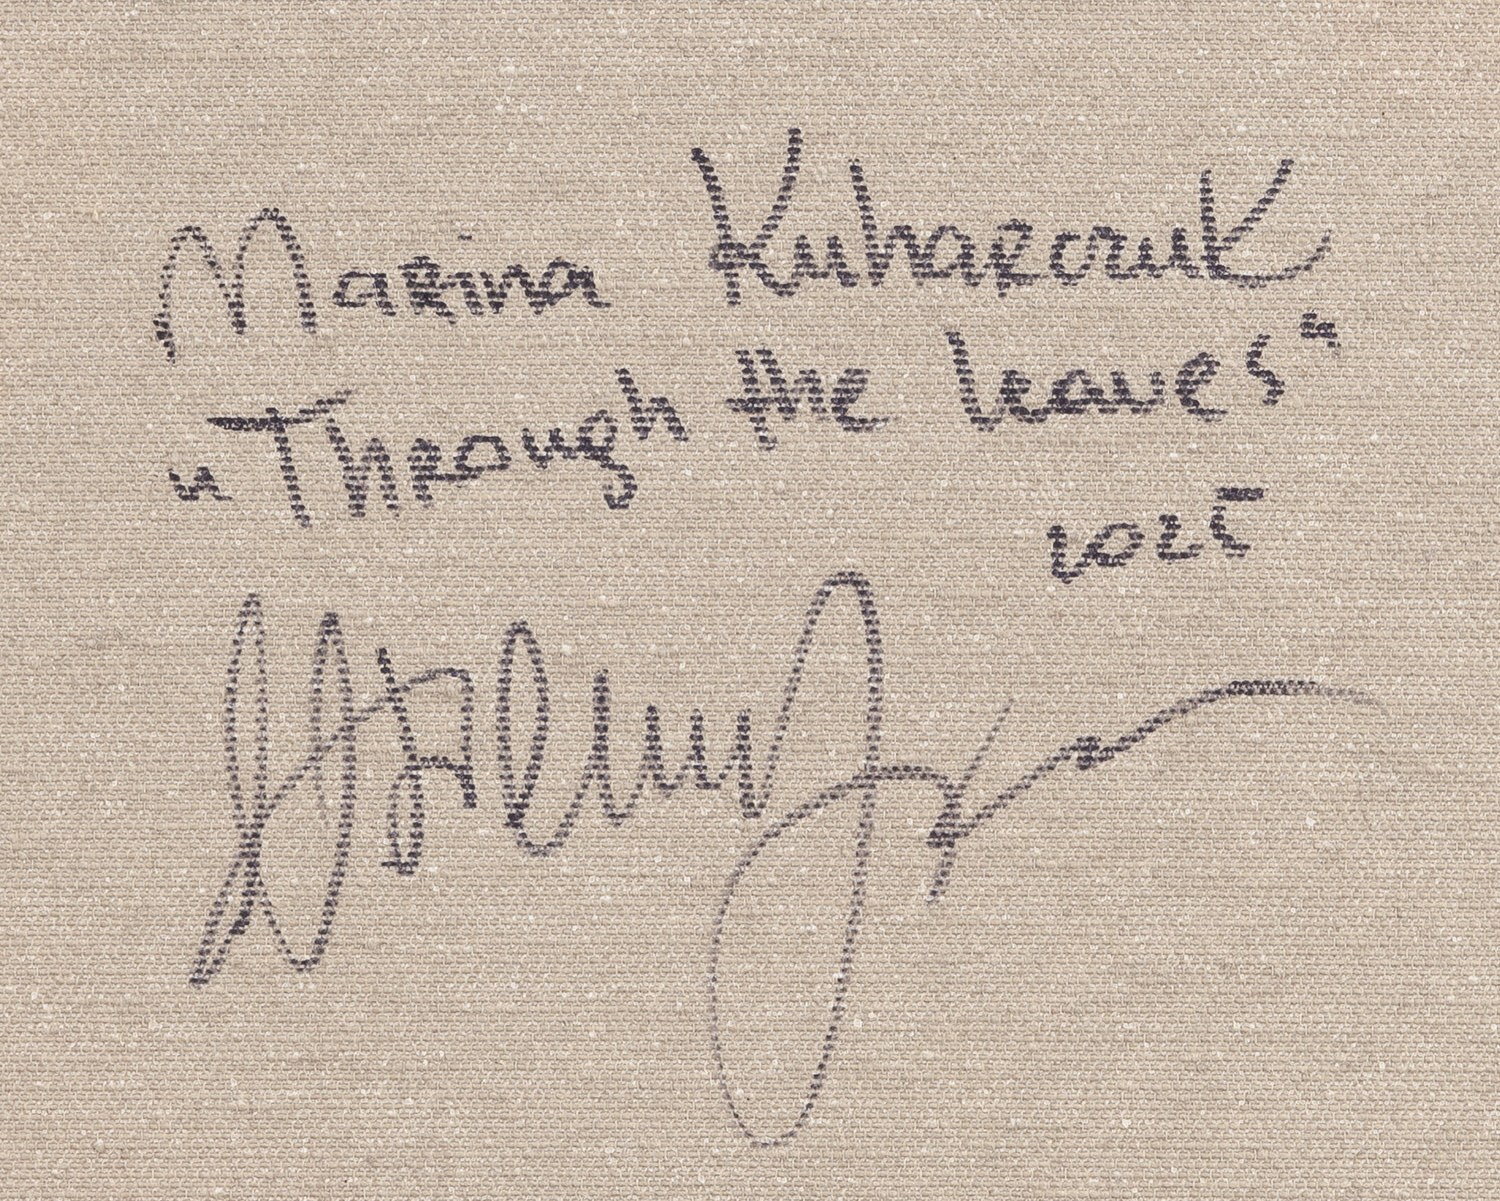 Marina Kuharczuk
"Through the leaves"
2025